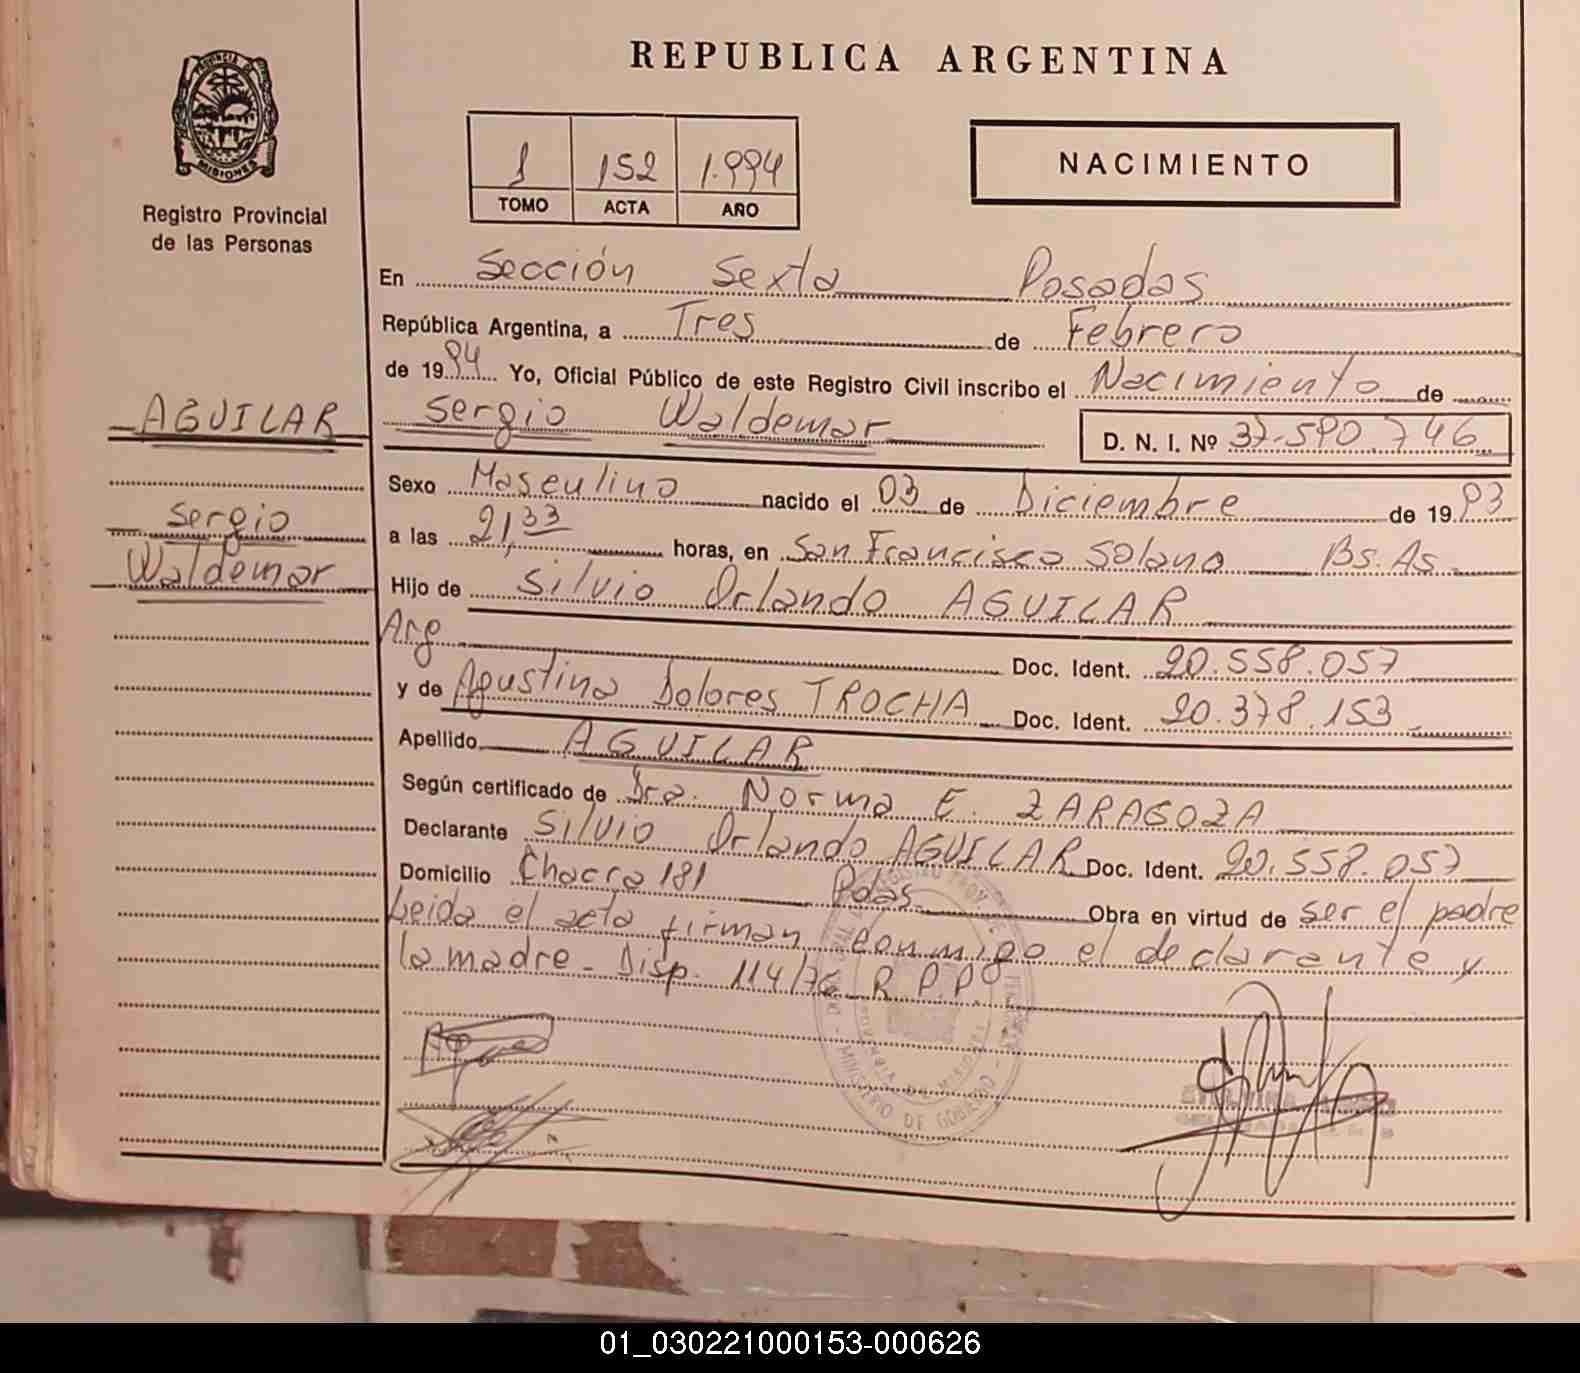 REPUBLICA ARGENTINA
PROVINCIA DE
MISIONES
Registro Provincial
de las Personas
1 152 1.994
TOMO ACTA AÑO
NACIMIENTO
En Sección Sexta Posadas
República Argentina, a Tres de Febrero
de 1994 Yo, Oficial Público de este Registro Civil inscribo el Nacimiento de
Sergio Waldemar D. N. I. Nº 37.590.746
AGUILAR
Sergio
Waldemar
Sexo Masculino nacido el 03 de Diciembre de 1993
a las 21,33 horas, en San Francisco Solano Bs. As.
Hijo de Silvio Orlando AGUILAR
Arg Doc. Ident. 20.558.057
y de Agustina Dolores TROCHA Doc. Ident. 20.378.153
Apellido AGUILAR
Según certificado de Dra. Norma E. ZARAGOZA
Declarante Silvio Orlando AGUILAR Doc. Ident. 20.558.057
Domicilio Chacra 181 Pdas. Obra en virtud de ser el padre
Leida el acta firman conmigo el declarante y
la madre - Disp. 114/76 R.P.P.
MINISTERIO DE GOBIERNO
PROVINCIA DE MISIONES
01_030221000153-000626